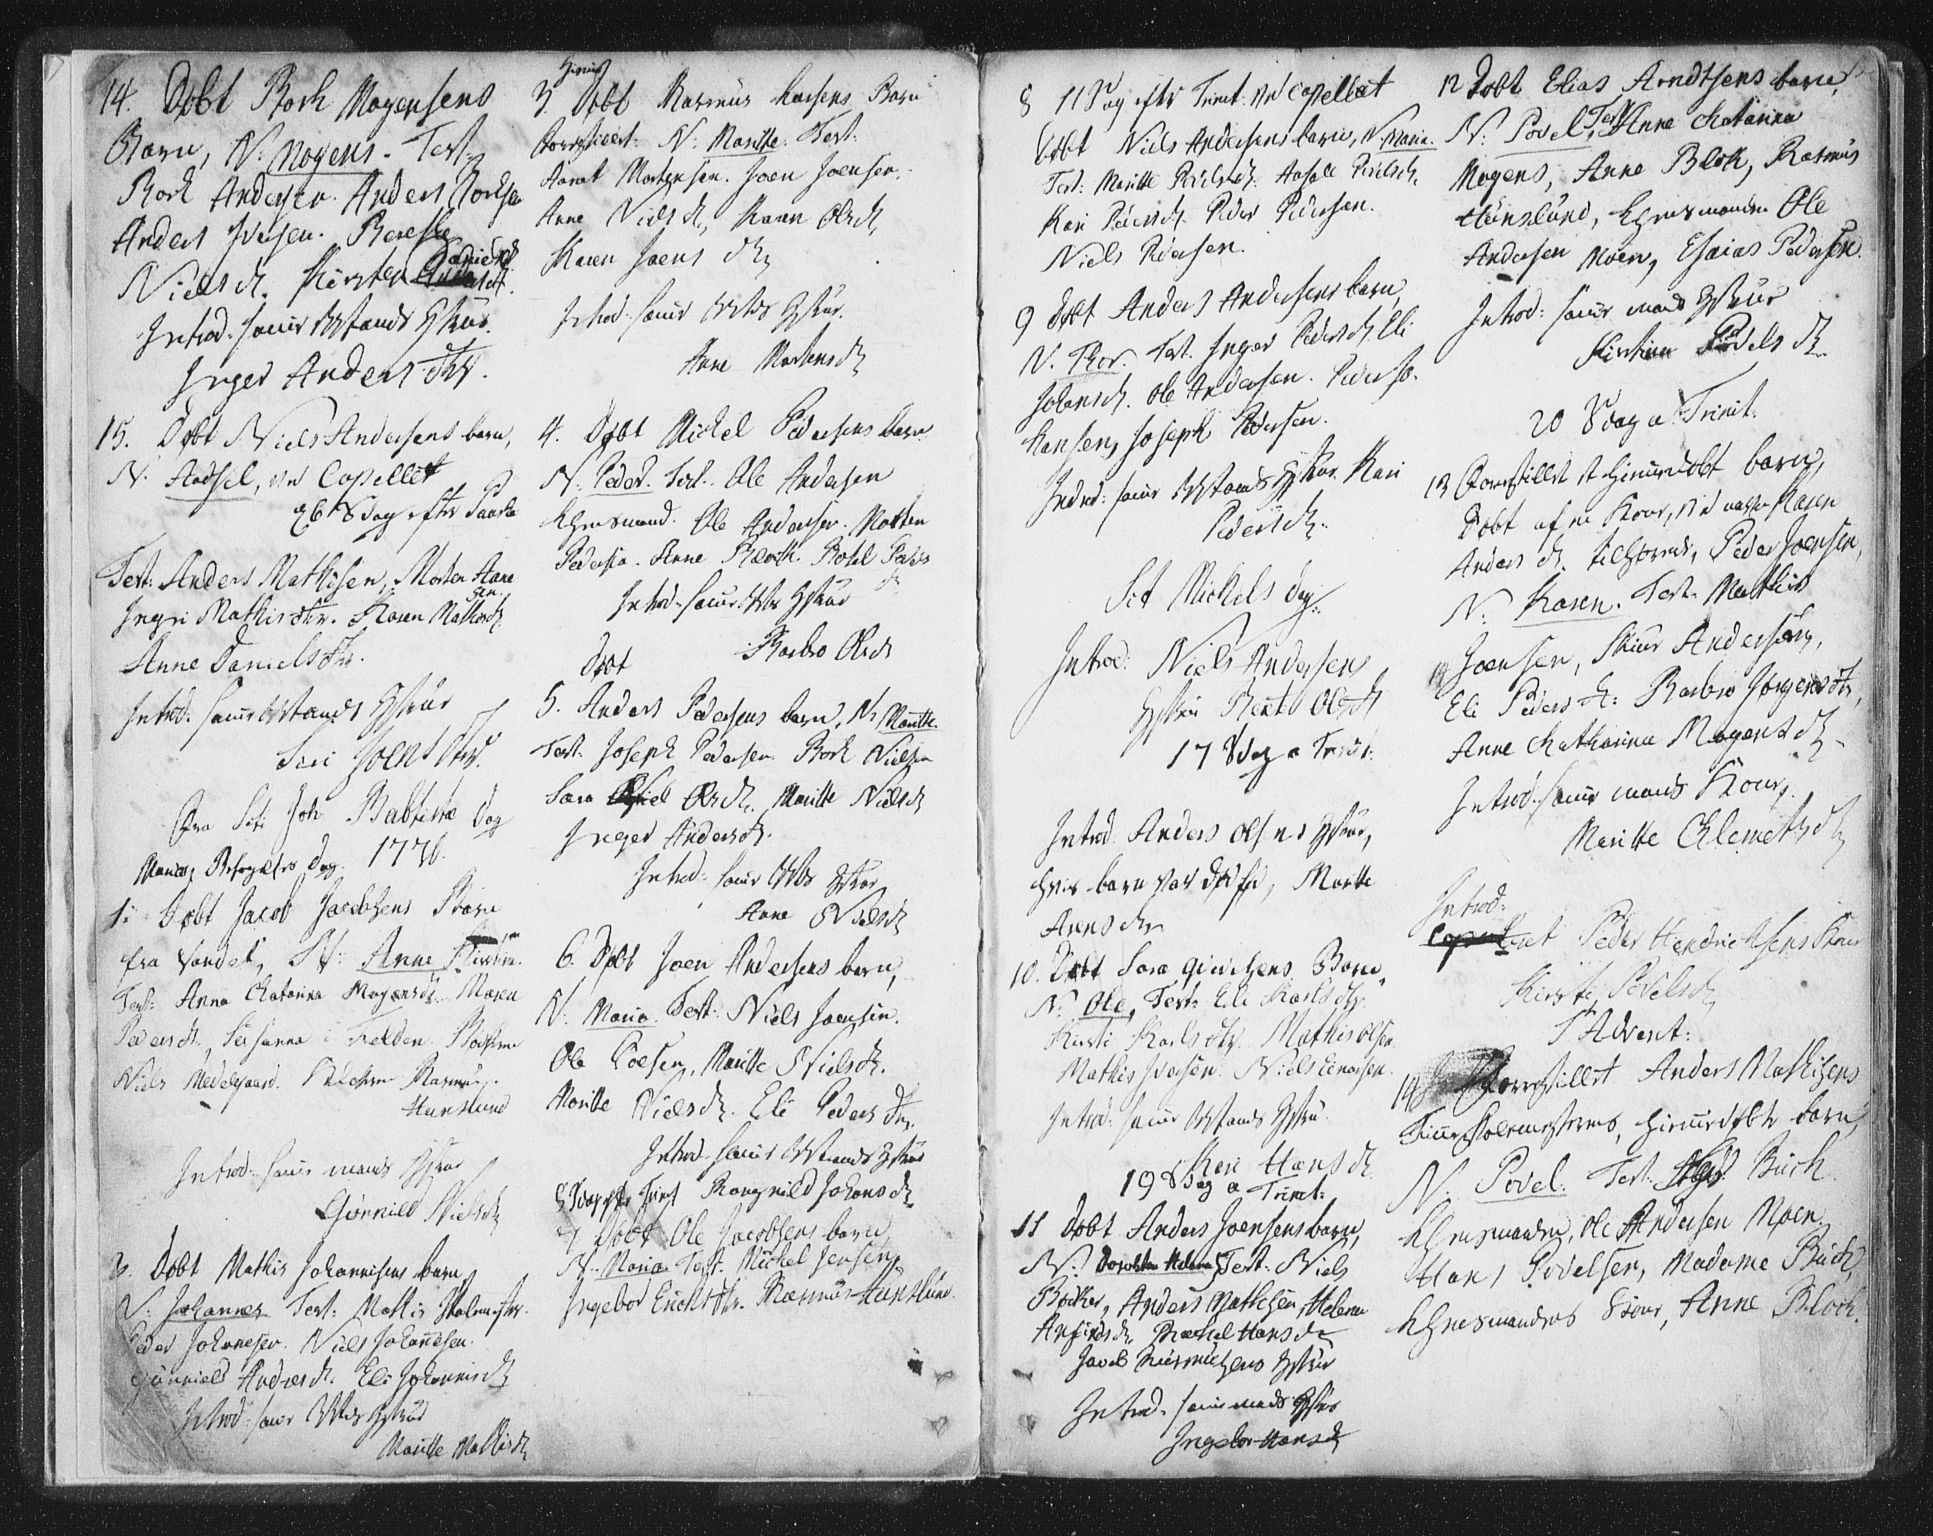 14. Døbt Bork Mogensens
Barn, N: Mogens. Test.
Bork Andersen. Anders Borksen
Anders Iversen. Berethe
Nielsdr. Kirsten Daniels
Introd: samme Mands Hustrue.
Inger Anders Dtr.
15. Døbt Niels Andersens barn,
N. Aodsel, ved Capellet
6 Sdag efter Paaske
Test: Anders Mathisen, Morten Aane
sen.
Ingri Mathisdtr. Karen Mathisdr
Anne Danielsdtr.
Introd. samme Mands Hustrue
Siri Joens Dtr.
Fra Sti Joh Babtistæ Dag
Mariæ Besøgelses Dag 1776.
1. Døbt Jacob Jacobsens Barn
fra Vandet, N: Anne
Test: Anna Catarina Mogensdr. Maren
Pedersdr, Susanna i Fielden
Niels Medelgaard. Rasmus
Hunslund
Introd: samme mands Hustrue
Gunnild Nielsdr
2. Døbt Mathis Johannisens barn
N: Johannes Test: Mathis Holmester.
Peder Johannesen. Niels Johannesen.
Gunnild Andersdr. Eli Johannisdr
Introd: samme Hustrue
Maritte Mathisdr
Hiemme
3. Døbt Rasmus Larsens Barn
N: Maritte. Test:
Aanet Mortensen. Joen Joensen.
Anne Nielsdr, Karen Olsdr
Karen Joens dr
Introd: samme Hustrue.
Anne Mortensdr
4. Døbt Michel Pedersens barn
N: Peder. Test. Ole Andersen
Lehnsmand. Ole Andersen. Morten
Pedersen. Anne Bodel Peders
dr
Introd: samme Hustrue
Barbro Olsdr
Døbt
5. Anders Pedersens barn, N: Maritte.
Test. Joseph Pedersen. Bork Nielsen
Sara Olsdr. Maritte Nielsdr
Inger Andersdr.
Introd: samme Hustrue
Anne Nielsdr
6. Døbt Joen Andersens barn,
N: Maria Test: Niels Joensen.
Ole Poelsen, Maritte Nielsdr.
Maritte Nielsdr. Eli Peders dtr.
Introd: samme Mands Hustrue
8 Sdag efter Trinit Rangnild Johansdr
7 Døbt Ole Jacobsens barn,
N: Maria Test: Michel Jensen,
Ingebor Erichsdtr. Rasmus Hunslund.
8 11 Sdag efter Trinit: ved Capellet
Døbt Niels Andersens barn, N: Maria.
Test: Maritte Povelsdr.
Kari Pedersdr. Peder Pedersen.
Niels Pedersen.
9 Døbt Anders Andersens barn,
N. Thor. Test. Inger Pedersdr, Eli
Johansdr. Ole Andersen. Peder
Hansen, Joseph Pedersen.
Introd: samme Mands Hustrue Kari
Pedersdr.
Sct Michels Dag.
Introd: Niels Andersens
Hustrue Berte Olsdr
17 Sdag a Trinit:
Introd. Anders Olsens Hustrue,
hvis barn var død, Maritte
Arnsdr
10. Døbt Barn,
N: Ole, Test: Eli Karlsdtr.
Kirsti Karlsdtr. Mathis Olsen
Mathis Iversen. Niels
Introd: samme Mands Hustrue.
Kari Hansdr
19 Sdag a Trinit:
11 Døbt Anders Joensens barn,
N: Dorothea Helena, Test: Niels
Bøcker, Anders Mathisen, Helena
Arfindsdr, Rachel Hansdr
Jacob Hustrue
Introd. samme mands Hustrue
Ingebor Hansdr
12 Døbt Elias Arndtsens barn,
N: Povel, Test: Anna Catarina
Mogens, Anne Blok, Rasmus
Hunslund, Lehnsmanden Ole
Andersen Moen, Esaias Pedersen.
Introd: samme mands Hustrue
Kirstine Povels dr
20 Sdag a Trinit:
13 Fremstillet et hiemmedøbt barn,
Døbt af en Kone, ved navn Karen
Anders dr. tilhørende, Peder Joensen,
N: Karen. Test. Mathis
Joensen, Andersen,
Eli Peders dr: Barbro Jørgensdtr
Anne Catharina Mogensdr
Introd: samme mands Kone,
Maritte Clemetsdr
Introd:
Peder Hendrichsens Kone
Kirsti Povelsdr
1 Advent:
14 Fremstillet Anders Mathisens
hiemmedøbte barn,
N: Povel. Test: Buch.
Lehnsmanden, Ole Andersen Moen,
Hans Povelsen, Madame Buch,
Lehnsmandens Kone, Anne Bloch.